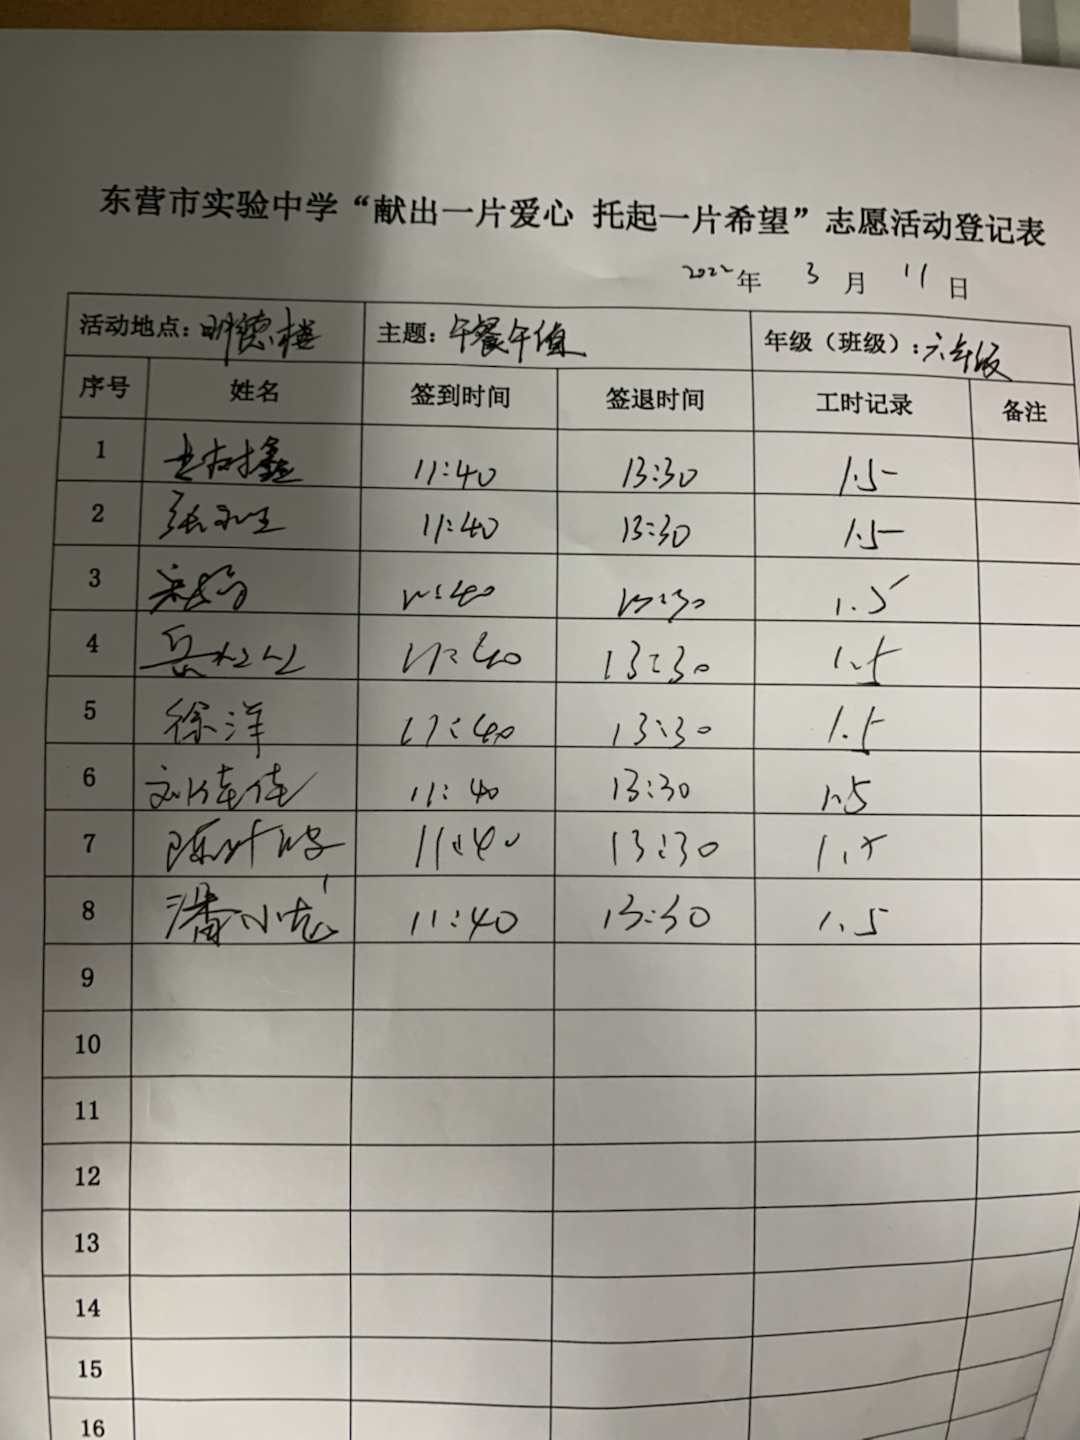 东营市实验中学“献出一片爱心 托起一片希望”志愿活动登记表
2022年 3 月 11 日
活动地点：明德楼 主题：午餐午值 年级（班级）：六年级
序号 姓名 签到时间 签退时间 工时记录 备注
1 11:40 13:30 1.5
2 张 11:40 13:30 1.5
3 11:40 13:30 1.5
4 岳 11:40 13:30 1.5
5 徐洋 11:40 13:30 1.5
6 刘佳佳 11:40 13:30 1.5
7 陈叶 11:40 13:30 1.5
8 潘小龙 11:40 13:30 1.5
9
10
11
12
13
14
15
16